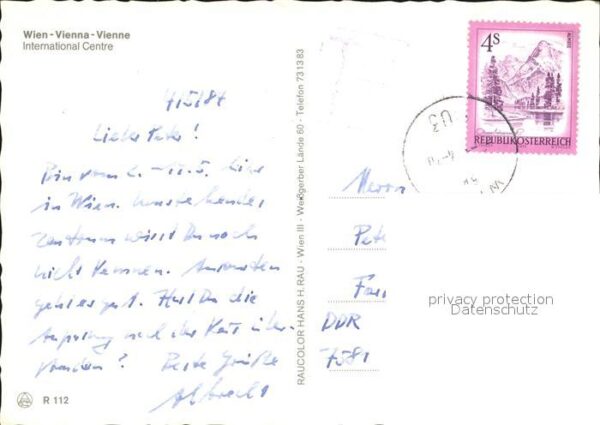 Wien - Vienna - Vienne
International Centre
4/5/84
Lieber Peter!
Bin vom 2. - 11.5. hier
in Wien.
Zentrum wirst Du noch
nicht kennen. Ansonsten
geht es gut. Hast Du die
und der Kur über-
standen? Beste Grüße
Albrecht
R 112
RAUCOLOR HANS H. RAU - Wien III - Weißgerber Lände 60 - Telefon 73 13 83
4S
ALMSEE
REPUBLIK ÖSTERREICH
Herrn
Pete
DDR
7581
privacy protection
Datenschutz